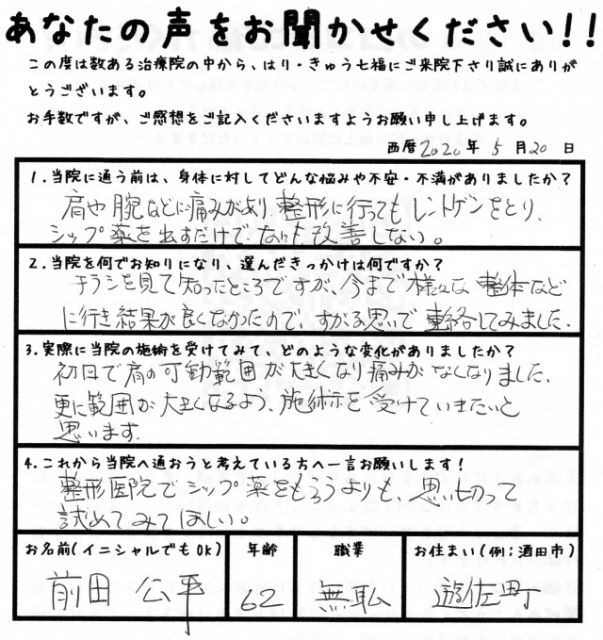 あなたの声をお聞かせください!!
この度は数ある治療院の中から、はり・きゅう七福にご来院下さり誠にありが
とうございます。
お手数ですが、ご感想をご記入くださいますようお願い申し上げます。
西暦2020年 5月20日
1.当院に通う前は、身体に対してどんな悩みや不安・不満がありましたか?
肩や腕などに痛みがあり整形に行ってもレントゲンをとり、
シップ薬を出すだけで 改善しない。
2.当院を何でお知りになり、選んだきっかけは何ですか?
チラシを見て知ったところですが、今まで様々な整体など
に行き結果が良くなかったので、すがる思いで連絡してみました.
3.実際に当院の施術を受けてみて、どのような変化がありましたか?
初日で肩の可動範囲が大きくなり痛みがなくなりました.
更に範囲が大きくなるよう、施術を受けていきたいと
思います.
4.これから当院へ通おうと考えている方へ一言お願いします!
整形医院でシップ薬をもらうよりも、思い切って
試めてみてほしい。
お名前(イニシャルでもOK) 年齢 職業 お住まい(例:酒田市)
前田 公平 62 無職 遊佐町